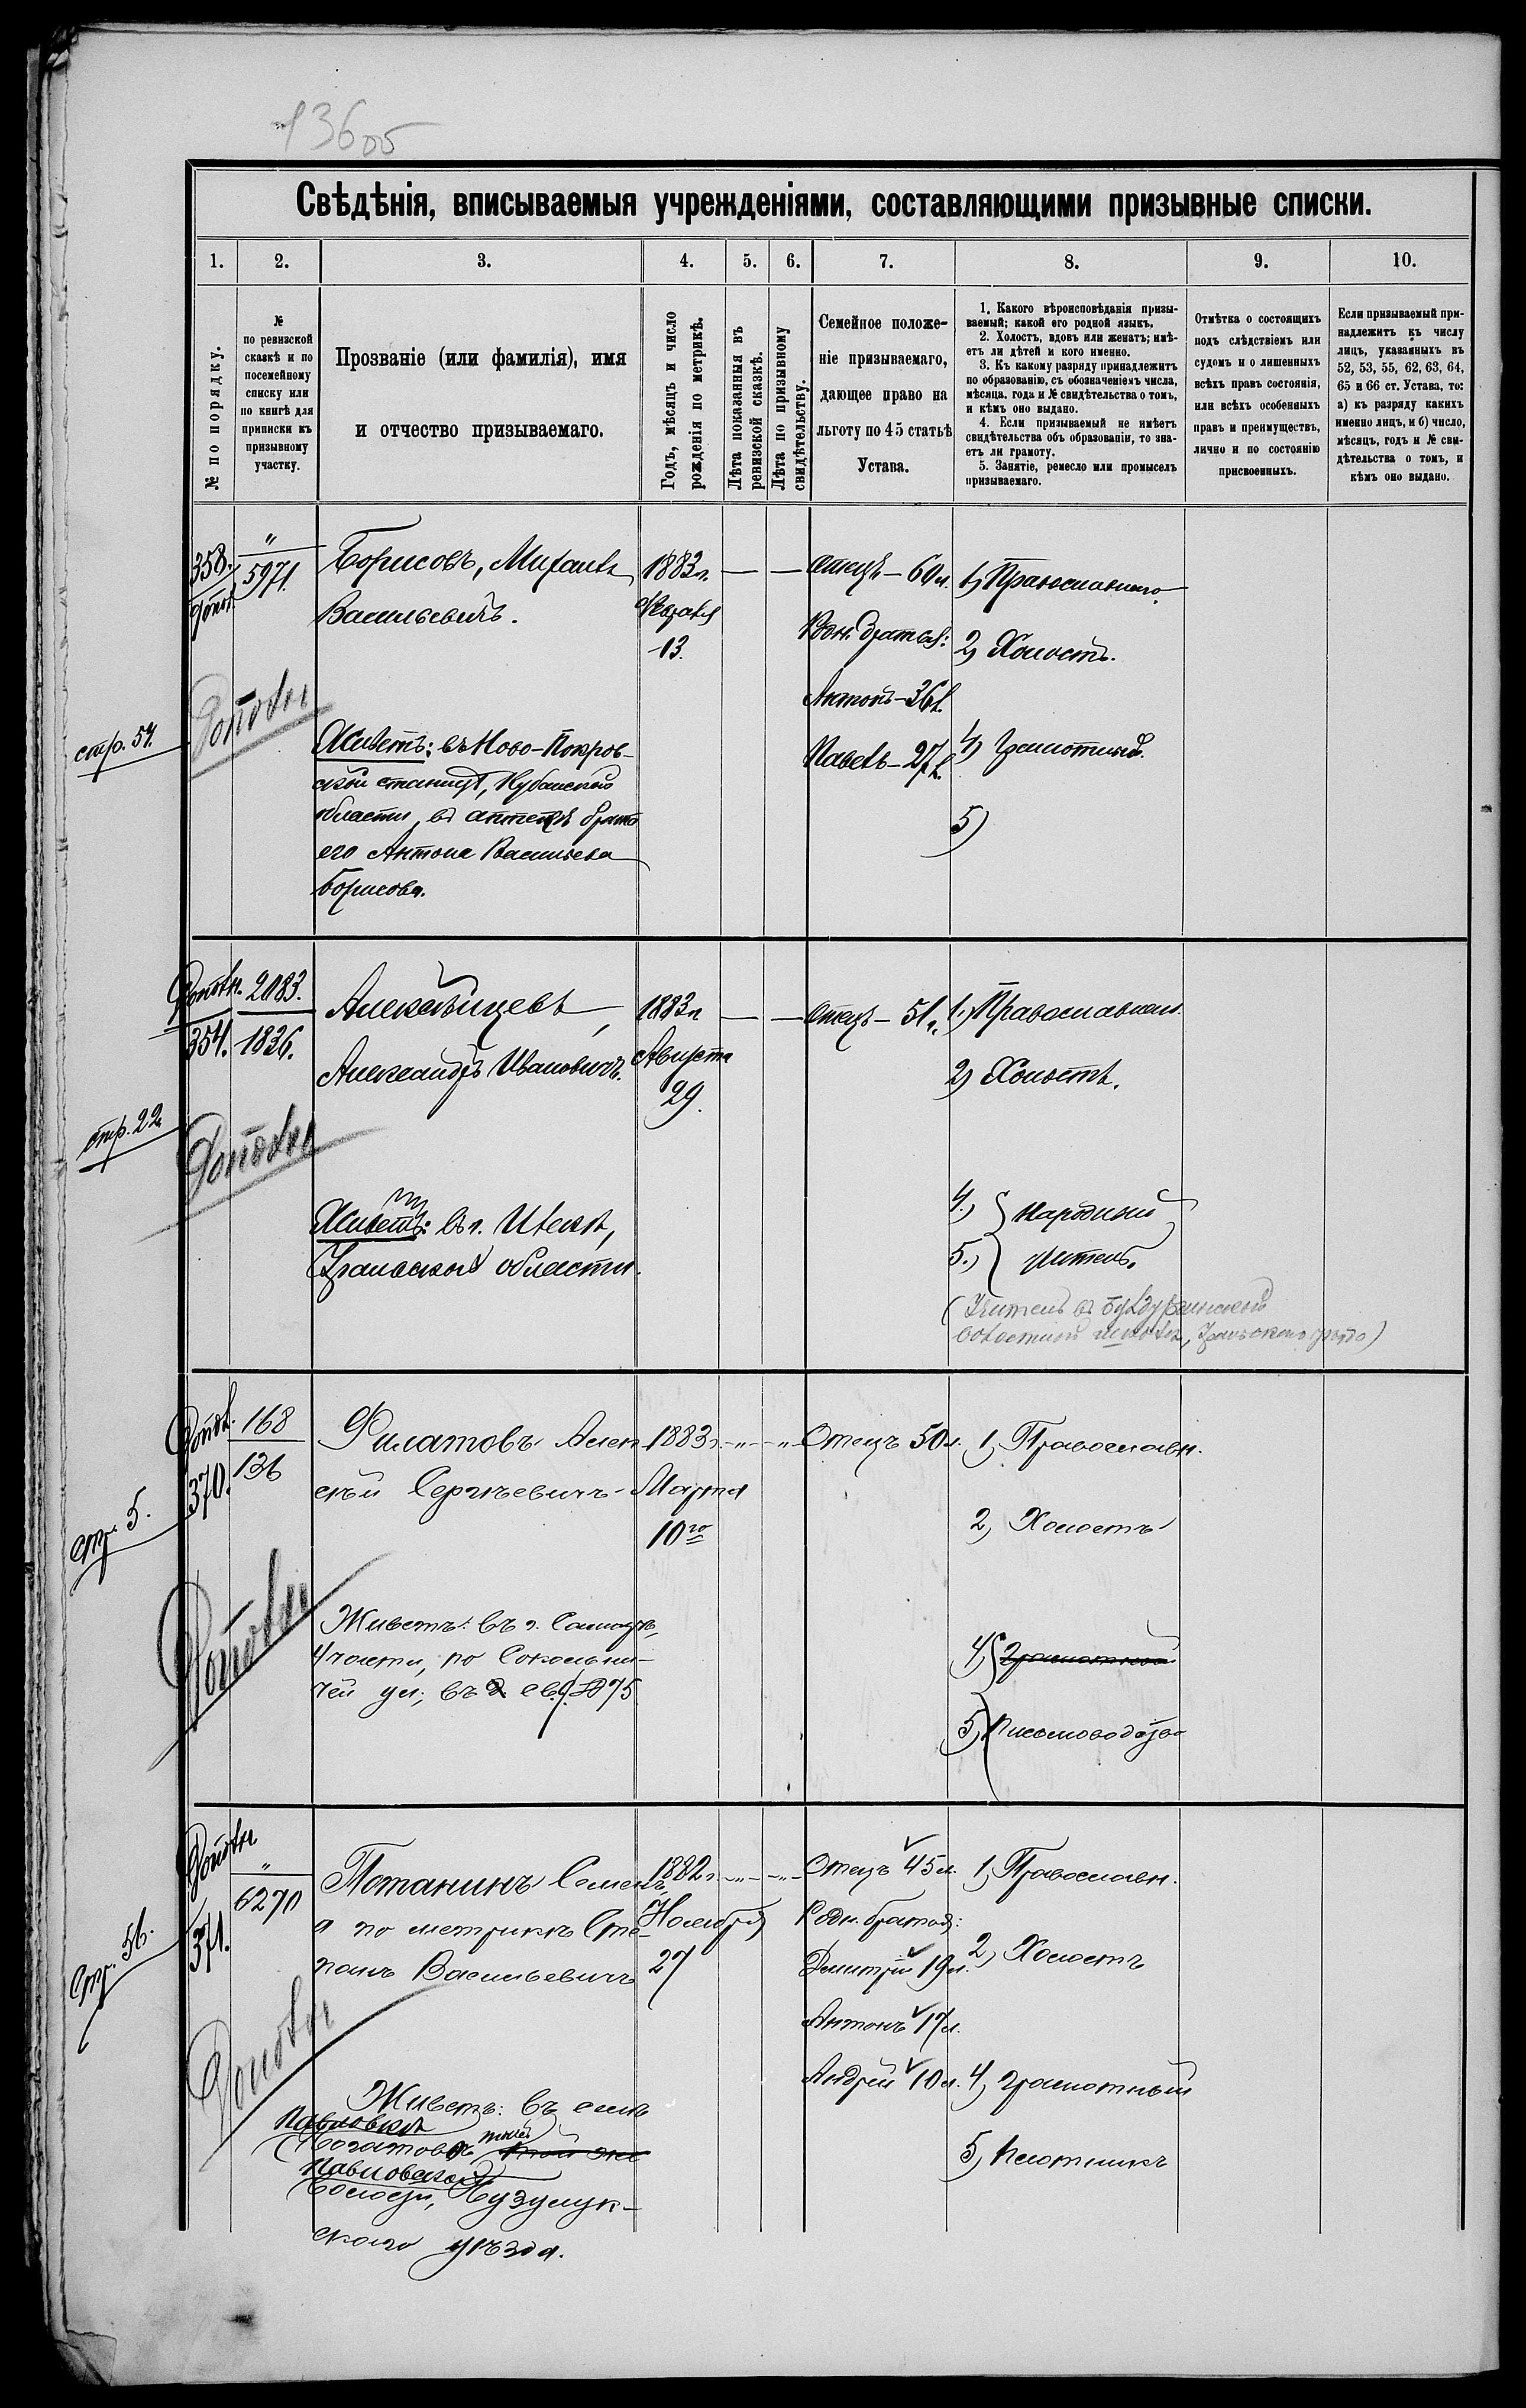 136об
Свѣдѣнія, вписываемыя учрежденіями, составляющими призывные списки.
1. 2. 3. 4. 5. 6. 7. 8. 9. 10.
№ по порядку.
№
по ревизской
сказкѣ и по
посемейному
списку или
по книгѣ для
приписки къ
призывному
участку.
Прозваніе (или фамилія), имя
и отчество призываемаго.
Годъ, мѣсяцъ и число
рожденія по метрикѣ.
Лѣта показанныя въ
ревизской сказкѣ.
Лѣта по призывному
свидѣтельству.
Семейное положе-
ніе призываемаго,
дающее право на
льготу по 45 статьѣ
Устава.
1. Какого вѣроисповѣданія призы-
ваемый; какой его родной языкъ.
2. Холостъ, вдовъ или женатъ; имѣ-
етъ ли дѣтей и кого именно.
3. Къ какому разряду принадлежитъ
по образованію, съ обозначеніемъ числа,
мѣсяца, года и № свидѣтельства о томъ,
и кѣмъ оно выдано.
4. Если призываемый не имѣетъ
свидѣтельства объ образованіи, то зна-
етъ ли грамоту.
5. Занятіе, ремесло или промыселъ
призываемаго.
Отмѣтка о состоящихъ
подъ слѣдствіемъ или
судомъ и о лишенныхъ
всѣхъ правъ состоянія,
или всѣхъ особенныхъ
правъ и преимуществъ,
лично и по состоянію
присвоенныхъ.
Если призываемый при-
надлежитъ къ числу
лицъ, указанныхъ въ
52, 53, 55, 62, 63, 64,
65 и 66 ст. Устава, то:
а) къ разряду какихъ
именно лицъ, и б) число,
мѣсяцъ, годъ и № сви-
дѣтельства о томъ, и
кѣмъ оно выдано.
358.
Допол.
"
5971.
Борисовъ, Михаилъ
Васильевичъ.
1883 г.
13.
— —
Отецъ — 60 л.
Родн. братья:
Антонъ — 36 л.
Павелъ — 27 л.
1) Православнаго
2) Холостъ.
4) Грамотный.
5)
стр. 54.
Дополн
Живетъ: въ Ново-Покров-
ской станицѣ, Кубанской
области, въ аптекѣ брата
его Антона Васильева
Борисова.
Дополн.
354.
2083.
1836.
Алексѣицевъ,
Александръ Ивановичъ.
1883 г.
Августа
29.
— —
Отецъ — 51 л.
1.) Православнаго.
2) Холостъ.
4.) Народный
5.) учитель.
(Учитель въ
волостной школѣ, Уральского уѣзда)
стр. 22
Дополн
Живетъ: въ г. Илекѣ,
Уральской области.
Дополн.
370.
168
136
Филатовъ Алек-
сѣй Сергѣевичъ
1883 г.
Марта
10го
-"- -"-
Отецъ 50 л.
1) Православн.
2) Холостъ
4) Грамотный
5) Письмоводство
стр. 5.
Дополн
Живетъ: въ г. Самарѣ,
4 части, по Сокольни-
чей ул., въ д. № 75
Дополн
371.
"
6270
Потанинъ Семенъ,
а по метрикѣ Сте-
панъ Васильевичъ
1882 г.
Ноября
27
-"- -"-
Отецъ 45 л.
Родн. братья:
Дмитрій 19 л.
Антонъ 17 л.
Андрей 10 л.
1) Православн.
2) Холостъ
4) грамотный
5) Плотникъ
стр. 56.
Дополн
Живетъ: въ селѣ
Павловкѣ
той же
Павловской
волости, Бузулук-
скаго уѣзда.